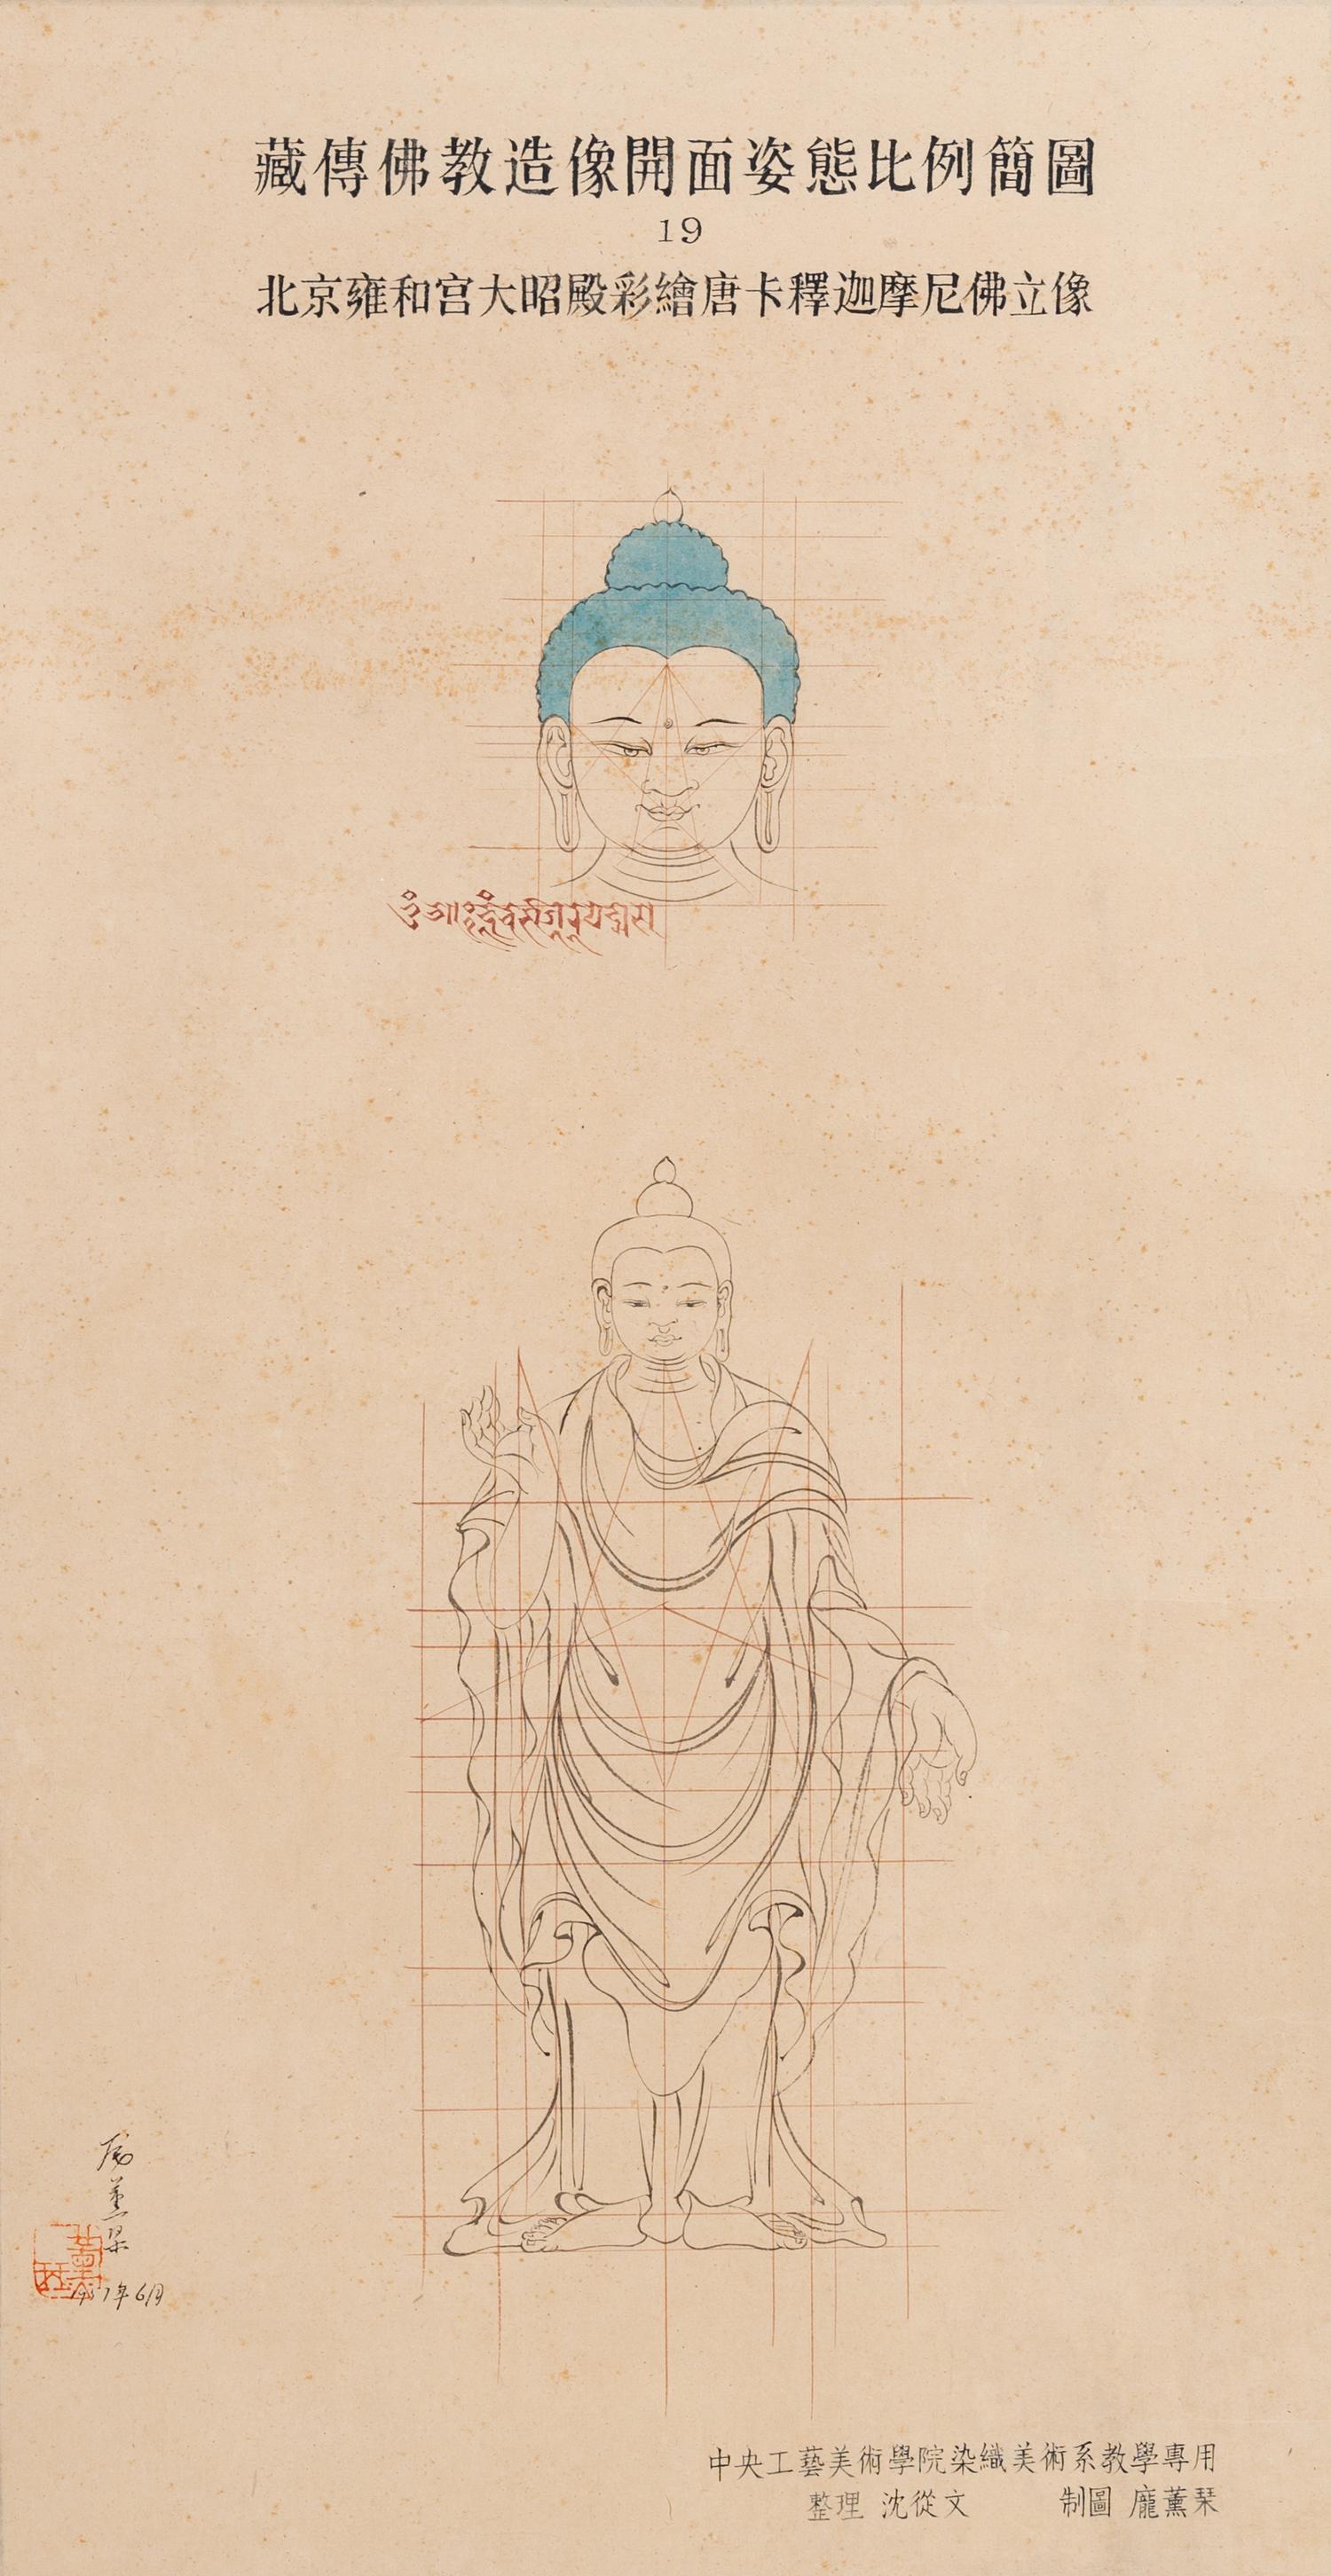 藏傳佛教造像開面姿態比例簡圖
19
北京雍和宫大昭殿彩繪唐卡釋迦摩尼佛立像
年6月
中央工藝美術學院染織美術系教學專用
整理 沈從文 制圖 龐薰琹